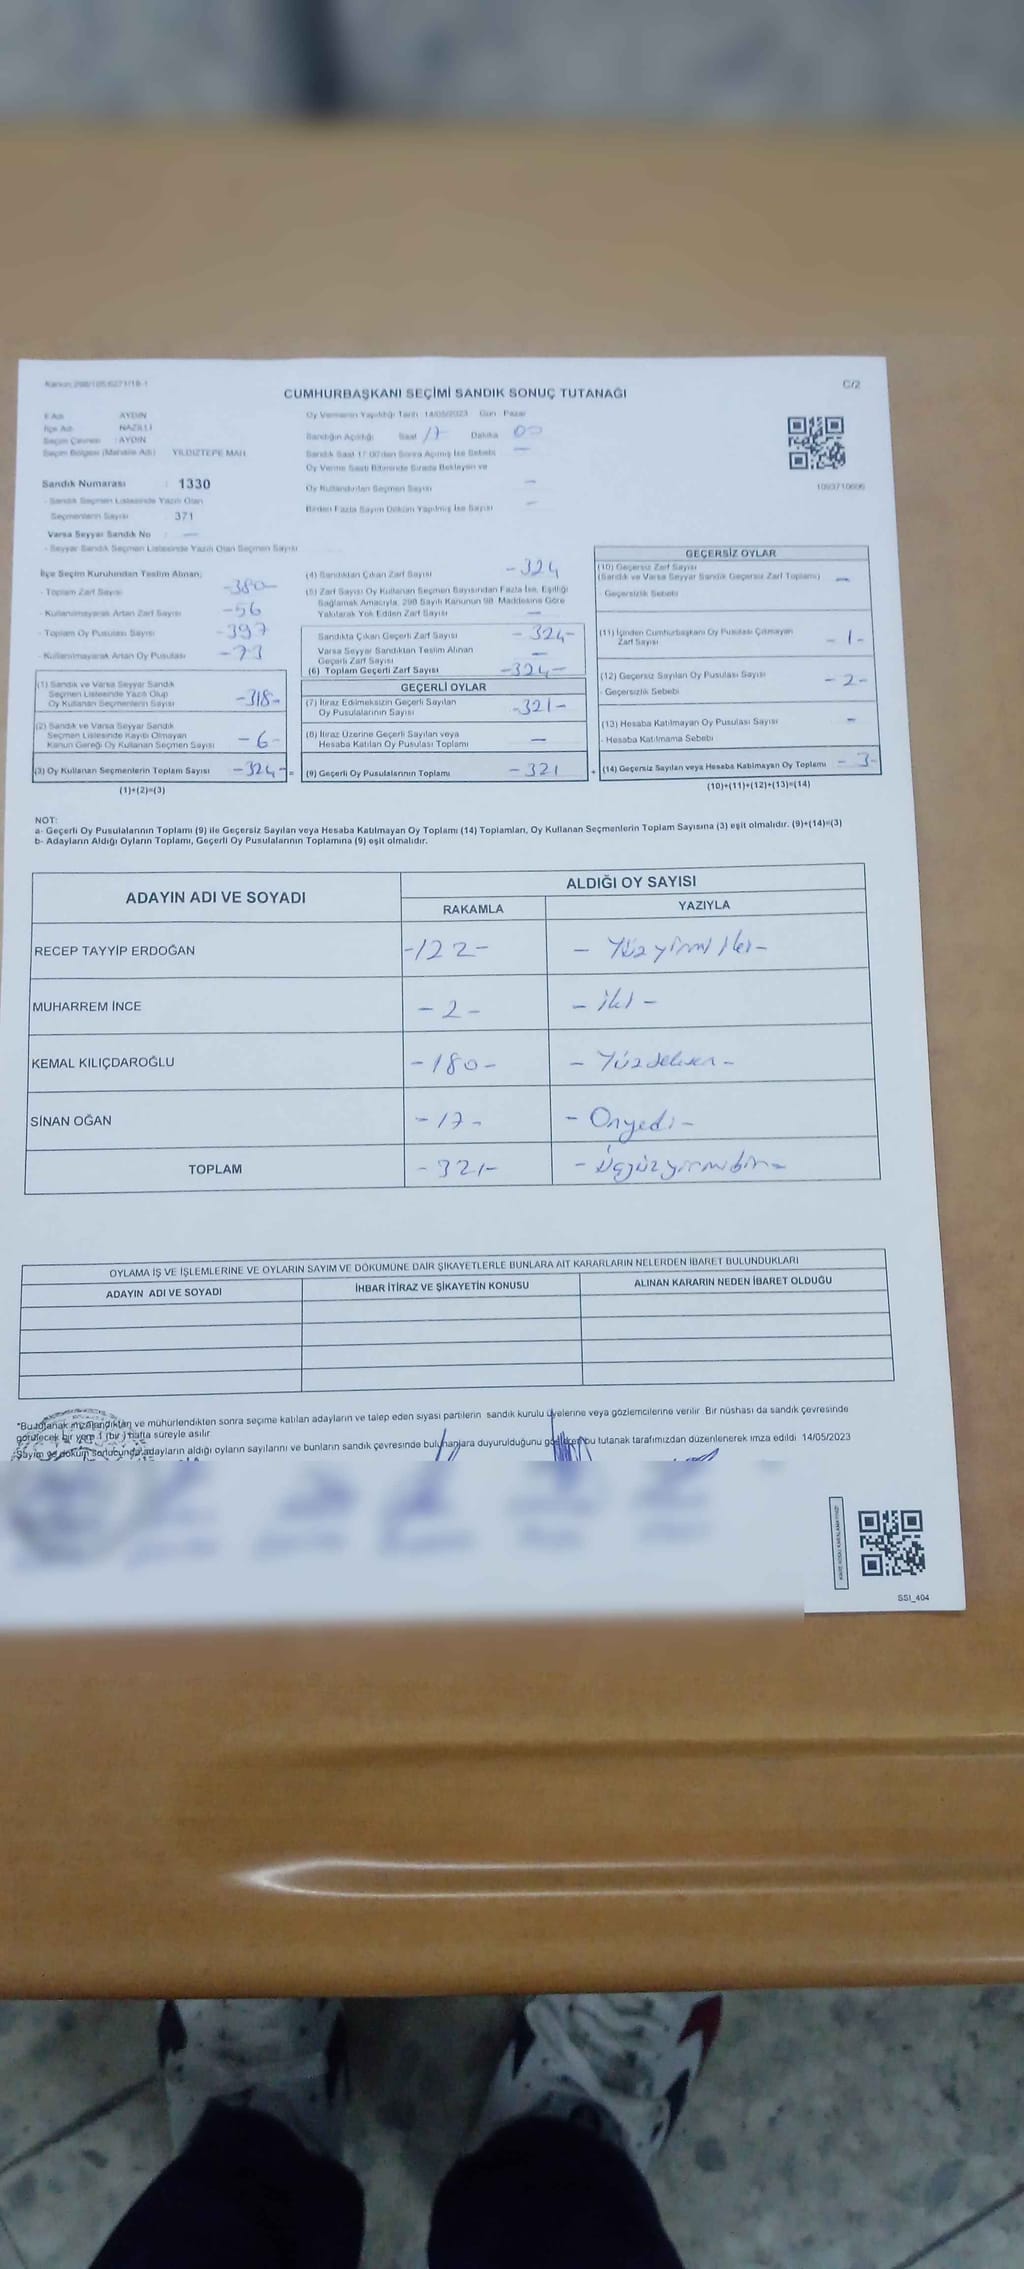 Kanun:298/105,6271/18-1
C/2
CUMHURBAŞKANI SEÇİMİ SANDIK SONUÇ TUTANAĞI
İl Adı AYDIN
İlçe Adı NAZİLLİ
Seçim Çevresi : AYDIN
Seçim Bölgesi (Mahalle Adı) YILDIZTEPE MAH.
Sandık Numarası : 1330
- Sandık Seçmen Listesinde Yazılı Olan
Seçmenlerin Sayısı 371
Varsa Seyyar Sandık No : —
- Seyyar Sandık Seçmen Listesinde Yazılı Olan Seçmen Sayısı
Oy Vermenin Yapıldığı Tarih 14/05/2023 Gün : Pazar
Sandığın Açıldığı Saat 17 Dakika 00
Sandık Saat 17:00'den Sonra Açılmış İse Sebebi —
Oy Verme Saati Bitiminde Sırada Bekleyen ve
Oy Kullandırılan Seçmen Sayısı —
Birden Fazla Sayım Döküm Yapılmış İse Sayısı —
1093710606
İlçe Seçim Kurulundan Teslim Alınan;
- Toplam Zarf Sayısı -380-
- Kullanılmayarak Artan Zarf Sayısı -56
- Toplam Oy Pusulası Sayısı -397
- Kullanılmayarak Artan Oy Pusulası -73
(1) Sandık ve Varsa Seyyar Sandık
Seçmen Listesinde Yazılı Olup
Oy Kullanan Seçmenlerin Sayısı -318-
(2) Sandık ve Varsa Seyyar Sandık
Seçmen Listesinde Kaydı Olmayan
Kanun Gereği Oy Kullanan Seçmen Sayısı -6-
(3) Oy Kullanan Seçmenlerin Toplam Sayısı -324- =
(1)+(2)=(3)
(4) Sandıktan Çıkan Zarf Sayısı -324
(5) Zarf Sayısı Oy Kullanan Seçmen Sayısından Fazla İse, Eşitliği
Sağlamak Amacıyla, 298 Sayılı Kanunun 98. Maddesine Göre
Yakılarak Yok Edilen Zarf Sayısı —
Sandıkta Çıkan Geçerli Zarf Sayısı -324-
Varsa Seyyar Sandıktan Teslim Alınan
Geçerli Zarf Sayısı —
(6) Toplam Geçerli Zarf Sayısı -324-
GEÇERLİ OYLAR
(7) İtiraz Edilmeksizin Geçerli Sayılan
Oy Pusulalarının Sayısı -321-
(8) İtiraz Üzerine Geçerli Sayılan veya
Hesaba Katılan Oy Pusulası Toplamı —
(9) Geçerli Oy Pusulalarının Toplamı -321 +
GEÇERSİZ OYLAR
(10) Geçersiz Zarf Sayısı
(Sandık ve Varsa Seyyar Sandık Geçersiz Zarf Toplamı) —
Geçersizlik Sebebi
(11) İçinden Cumhurbaşkanı Oy Pusulası Çıkmayan
Zarf Sayısı -1-
(12) Geçersiz Sayılan Oy Pusulası Sayısı -2-
- Geçersizlik Sebebi
(13) Hesaba Katılmayan Oy Pusulası Sayısı —
- Hesaba Katılmama Sebebi
(14) Geçersiz Sayılan veya Hesaba Katılmayan Oy Toplamı -3-
(10)+(11)+(12)+(13)=(14)
NOT:
a- Geçerli Oy Pusulalarının Toplamı (9) ile Geçersiz Sayılan veya Hesaba Katılmayan Oy Toplamı (14) Toplamları, Oy Kullanan Seçmenlerin Toplam Sayısına (3) eşit olmalıdır. (9)+(14)=(3)
b- Adayların Aldığı Oyların Toplamı, Geçerli Oy Pusulalarının Toplamına (9) eşit olmalıdır.
ADAYIN ADI VE SOYADI ALDIĞI OY SAYISI
RAKAMLA YAZIYLA
RECEP TAYYİP ERDOĞAN -122- - Yüzyirmi iki -
MUHARREM İNCE -2- - iki -
KEMAL KILIÇDAROĞLU -180- - Yüzseksen -
SİNAN OĞAN -17- - Onyedi -
TOPLAM -321- - Üçyüzyirmibir -
OYLAMA İŞ VE İŞLEMLERİNE VE OYLARIN SAYIM VE DÖKÜMÜNE DAİR ŞİKAYETLERLE BUNLARA AİT KARARLARIN NELERDEN İBARET BULUNDUKLARI
ADAYIN ADI VE SOYADI İHBAR İTİRAZ VE ŞİKAYETİN KONUSU ALINAN KARARIN NEDEN İBARET OLDUĞU
*Bu tutanak imzalandıktan ve mühürlendikten sonra seçime katılan adayların ve talep eden siyasi partilerin sandık kurulu üyelerine veya gözlemcilerine verilir. Bir nüshası da sandık çevresinde
görülecek bir yere 1 (bir) hafta süreyle asılır
Sayım ve döküm sonucunda adayların aldığı oyların sayılarını ve bunların sandık çevresinde bulunanlara duyurulduğunu gösteren bu tutanak tarafımızdan düzenlenerek imza edildi 14/05/2023
SSI_404